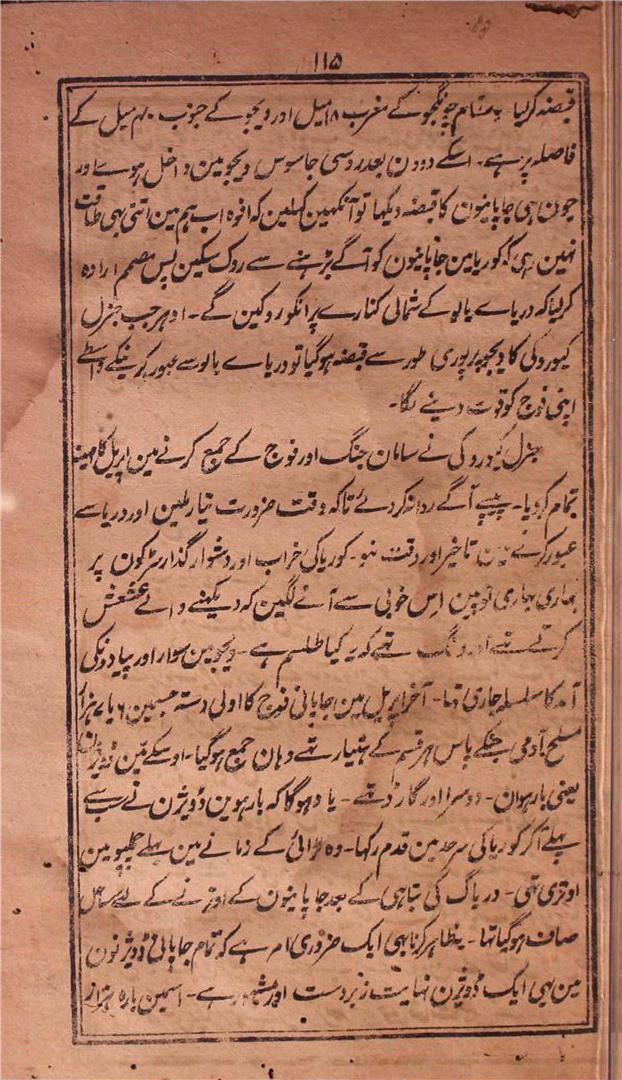 ۱۱۵
قبضہ کرلیا یہ مقام چونگجو کے مغرب ۱۸ میل اور ویجو کے جنوب ۴۰ میل کے
فاصلہ پر ہے۔ اسکے دو دن بعد روسی جاسوس ویجو مین داخل ہوئے اور
جون ہی جاپانیون کا قبضہ دیکھا تو آنکھین کھلین کہ افوہ اب ہم مین اتنی بھی طاقت
نہین رہی کہ کوریا مین جاپانیون کو آگے بڑہنے سے روک سکین پس مصمم ارادہ
کرلیا کہ دریاے یالو کے شمالی کنارے پر انکو روکین گے۔ اودہر جب جنرل
کیوروکی کا ویجو پر پوری طور سے قبضہ ہوگیا تو دریاے یالو سے عبور کرنیکے واسطے
اپنی فوج کو قوت دینے لگا۔
جنرل کیوروکی نے سامان جنگ اور فوج کے جمع کرنے مین اپریل کا مہینا
تمام کردیا۔ پیپے آگے روانہ کردئے تاکہ وقت ضرورت تیار ملین اور دریا سے
عبور کرنے مین تاخیر اور دقت نہو۔ کوریا کی خراب اور دشوار گذار سڑکون پر
بھاری بھاری توپین اس خوبی سے آنے لگین کہ دیکھنے والے عشعش
کرتے تھے اور دنگ تھے کہ یہ کیا طلسم ہے۔ ویجو مین سوار اور پیادونکی
آمد کا سلسلہ جاری تھا۔ آخر اپریل مین جاپانی فوج کا اولی دستہ جسمین ۶ یا ۷ ہزار
مسلح آدمی جنکے پاس ہر قسم کے ہتیار تھے وہان جمع ہوگیا۔ اوسکے تین ڈویژن
یعنی بارہوان۔ دوسرا اور گارڈ تھے۔ یاد ہوگا کہ بارہوین ڈویژن نے سب سے
پہلے آکر کوریا کی سرحد مین قدم رکھا۔ وہ لڑائی کے زمانے مین پہلے چلپو مین
اوتری تھی۔ دریاگ کی تباہی کے بعد جاپانیون کے اوترنے کے لیے ساحل
صاف ہوگیا تھا۔ یہ ظاہر کرنا بھی ایک ضروری امر ہے کہ تمام جاپانی ڈویژنون
مین یہی ایک ڈویژن نہایت زبردست اور مشہور ہے۔ اسمین بارہ ہزار